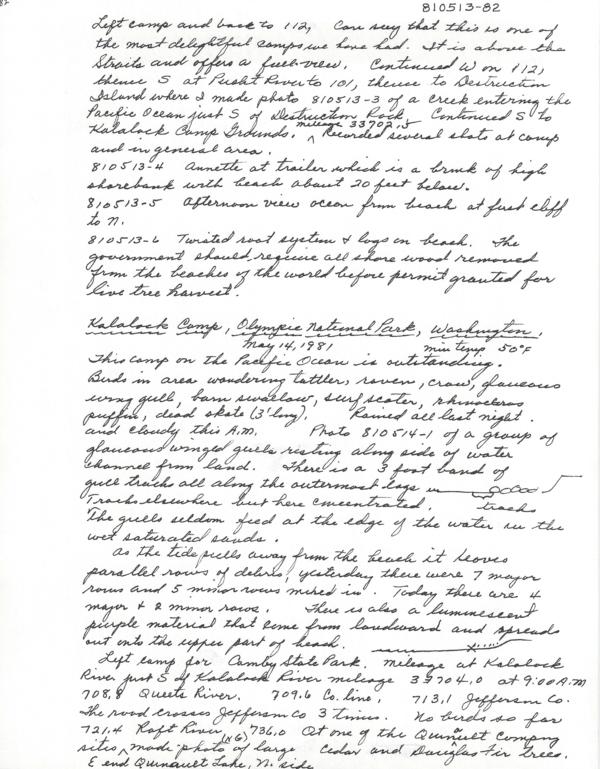 82
810513-82
Left camp and back to 112, Can say that this is one of
the most delightful camps we have had. It is above the
Straits and offers a full view. Continued W on 112,
thence S at Pusht River to 101, thence to Destruction
Island where I made photo 810513-3 of a creek entering the
Pacific Ocean just S of Destruction Rock. Continued S to
Kalalock Camp Grounds. mileage 33702.5 Recorded several slots at camp
and in general area.
810513-4 Annette at trailer which is a brink of high
shorebank with beach about 20 feet below.
810513-5 Afternoon view ocean from beach at first cliff
to N.
810513-6 Twisted root system & logs on beach. The
government should require all shore wood removed
from the beaches of the world before permit granted for
live tree harvest.
Kalalock Camp, Olympic National Park, Washington.
May 14, 1981 min temp 50°F
This camp on the Pacific Ocean is outstanding.
Birds in area wandering tattler, raven, crow, glaucous
wing gull, barn swallow, surf scoter, rhinoceros
puffin, dead skate (3' long). Rained all last night.
and cloudy this A.M. Photo 810514-1 of a group of
glaucous winged gulls resting along side of water
channel from land. There is a 3 foot band of
gull tracks all along the outermost logs in
Tracks elsewhere but here concentrated. tracks
The gulls seldom feed at the edge of the water in the
wet saturated sands.
As the tide pulls away from the beach it leaves
parallel rows of debris, yesterday there were 7 major
rows and 5 minor rows mixed in. Today there are 4
major & 2 minor rows. There is also a luminescent
purple material that come from landward and spreads
out onto the upper part of beach.
Left camp for Camby State Park. mileage at Kalalock
River just S of Kalalock River mileage 33704.0 at 9:00 A.M
708.8 Queets River. 709.6 Co. line, 713.1 Jefferson Co.
The road crosses Jefferson Co 3 times. No birds so far
721.4 Raft River, 736.0 At one of the Quinault Company
sites, made photo (x6) of large cedar and Douglas Fir trees.
E end Quinault Lake, N. side